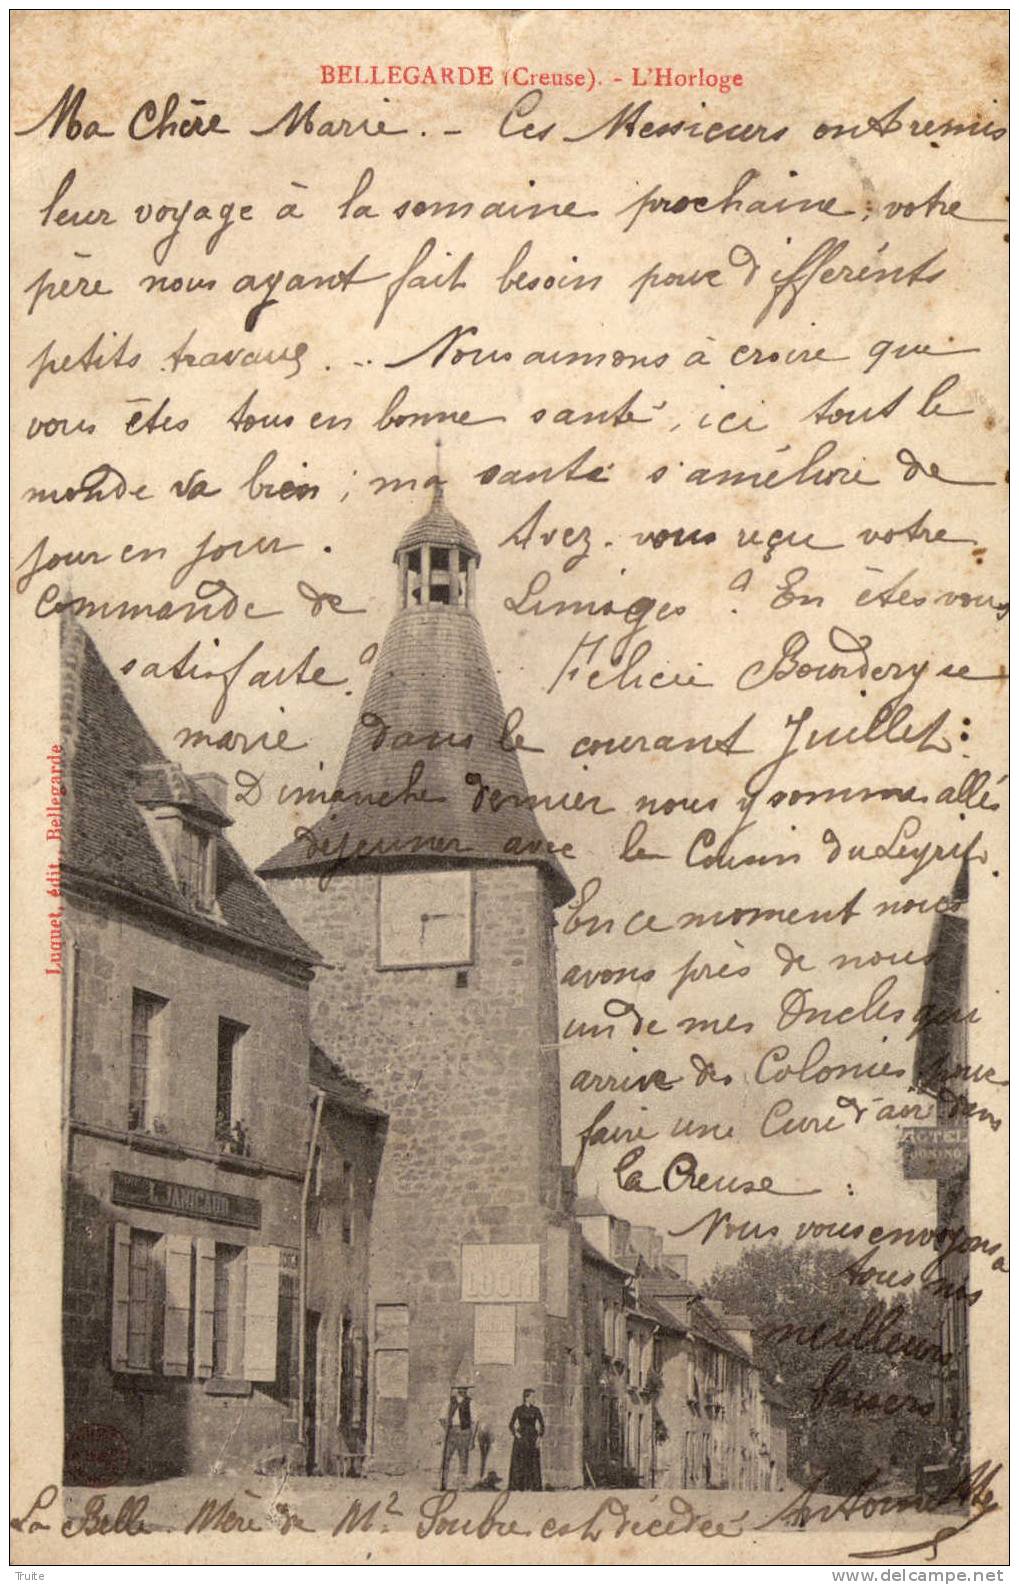 BELLEGARDE (Creuse). - L'Horloge
Ma Chère Marie. - Ces Messieurs ont remis
leur voyage à la semaine prochaine, votre
père nous ayant fait besoin pour différents
petits travaux. .. Nous aimons à croire que
vous êtes tous en bonne santé, ici tout le
monde va bien; ma santé s'améliore de
jour en jour. Avez-vous reçu votre
Commande de Limoges? En êtes vous
satisfaite? Félicie Bourdery se
marie dans le courant Juillet:
Dimanche dernier nous y sommes allés
déjeuner avec le Cousin du Leyrit.
En ce moment nous
avons près de nous
un de mes Oncles qui
arrive des Colonies pour
faire une Cure d'air dans
la Creuse :
Nous vous envoyons à
tous nos
meilleurs
baisers
Antoine
La Belle-Mère de Mr Soubre est décédée
Luquet, édit., Bellegarde
JANICAUD
HOTEL
LOUIT
Truite
www.delcampe.net